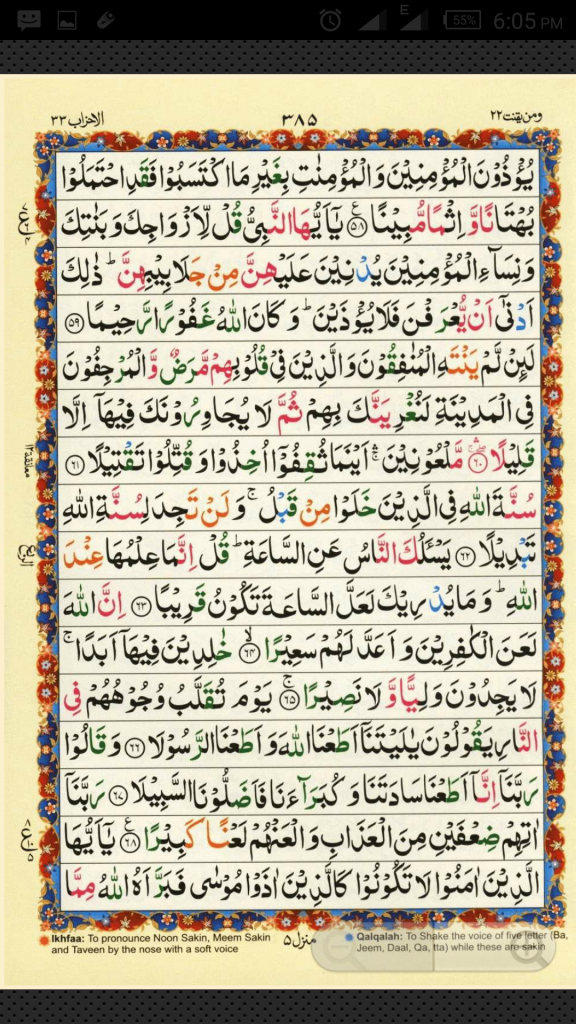 E
55%
6:05 PM
ومن يقنت ٢٢
٣٨٥
الاحزاب ٣٣
يُؤْذُوْنَ الْمُؤْمِنِيْنَ وَالْمُؤْمِنٰتِ بِغَيْرِ مَا اكْتَسَبُوْا فَقَدِ احْتَمَلُوْا
بُهْتَانًا وَّ اِثْمًا مُّبِيْنًا ﴿٥٨﴾ يٰٓاَيُّهَا النَّبِيُّ قُلْ لِّاَزْوَاجِكَ وَ بَنٰتِكَ
وَ نِسَآءِ الْمُؤْمِنِيْنَ يُدْنِيْنَ عَلَيْهِنَّ مِنْ جَلَابِيْبِهِنَّ ؕ ذٰلِكَ
اَدْنٰۤى اَنْ يُّعْرَفْنَ فَلَا يُؤْذَيْنَ ؕ وَ كَانَ اللّٰهُ غَفُوْرًا رَّحِيْمًا ﴿٥٩﴾
لَئِنْ لَّمْ يَنْتَهِ الْمُنٰفِقُوْنَ وَ الَّذِيْنَ فِيْ قُلُوْبِهِمْ مَّرَضٌ وَّ الْمُرْجِفُوْنَ
فِي الْمَدِيْنَةِ لَنُغْرِيَنَّكَ بِهِمْ ثُمَّ لَا يُجَاوِرُوْنَكَ فِيْهَاۤ اِلَّا
قَلِيْلًا ﴿٦٠﴾ مَّلْعُوْنِيْنَ ۛ اَيْنَمَا ثُقِفُوْۤا اُخِذُوْا وَ قُتِّلُوْا تَقْتِيْلًا ﴿٦١﴾
سُنَّةَ اللّٰهِ فِي الَّذِيْنَ خَلَوْا مِنْ قَبْلُ ۚ وَ لَنْ تَجِدَ لِسُنَّةِ اللّٰهِ
تَبْدِيْلًا ﴿٦٢﴾ يَسْـَٔلُكَ النَّاسُ عَنِ السَّاعَةِ ؕ قُلْ اِنَّمَا عِلْمُهَا عِنْدَ
اللّٰهِ ؕ وَ مَا يُدْرِيْكَ لَعَلَّ السَّاعَةَ تَكُوْنُ قَرِيْبًا ﴿٦٣﴾ اِنَّ اللّٰهَ
لَعَنَ الْكٰفِرِيْنَ وَ اَعَدَّ لَهُمْ سَعِيْرًا ﴿٦٤﴾ خٰلِدِيْنَ فِيْهَاۤ اَبَدًا ۚ
لَا يَجِدُوْنَ وَلِيًّا وَّ لَا نَصِيْرًا ﴿٦٥﴾ يَوْمَ تُقَلَّبُ وُجُوْهُهُمْ فِي
النَّارِ يَقُوْلُوْنَ يٰلَيْتَنَاۤ اَطَعْنَا اللّٰهَ وَ اَطَعْنَا الرَّسُوْلَا ﴿٦٦﴾ وَ قَالُوْا
رَبَّنَاۤ اِنَّاۤ اَطَعْنَا سَادَتَنَا وَ كُبَرَآءَنَا فَاَضَلُّوْنَا السَّبِيْلَا ﴿٦٧﴾ رَبَّنَاۤ
اٰتِهِمْ ضِعْفَيْنِ مِنَ الْعَذَابِ وَ الْعَنْهُمْ لَعْنًا كَبِيْرًا ﴿٦٨﴾ يٰٓاَيُّهَا
الَّذِيْنَ اٰمَنُوْا لَا تَكُوْنُوْا كَالَّذِيْنَ اٰذَوْا مُوْسٰى فَبَرَّاَهُ اللّٰهُ مِمَّا
Ikhfaa: To pronounce Noon Sakin, Meem Sakin
and Taveen by the nose with a soft voice
منزل ٥
Qalqalah: To Shake the voice of five letter (Ba,
Jeem, Daal, Qa, tta) while these are sakin